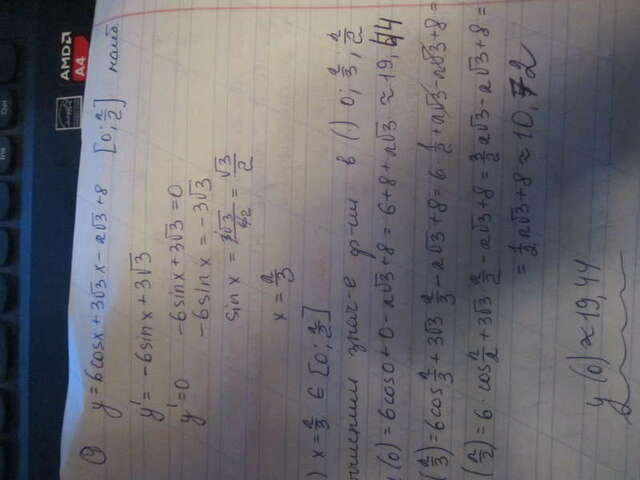 y = 6cosx + 3√3 x - π√3 + 8 [0; π/2] наиб.
y' = -6sinx + 3√3
y' = 0 -6sinx + 3√3 = 0
-6sinx = -3√3
sin x = 3√3/6 2 = √3/2
x = π/3
) x = π/3 ∈ [0; π/2]
знач-е ф-ии в (·) 0; π/3; π/2
(0) = 6cos0 + 0 - π√3 + 8 = 6 + 8 + π√3 ≈ 19,44
(π/3) = 6cos π/3 + 3√3 π/3 - π√3 + 8 = 6 · 1/2 + π√3 - π√3 + 8 =
(π/2) = 6 · cos π/2 + 3√3 π/2 - π√3 + 8 = 3/2 π√3 - π√3 + 8 =
= 1/2 π√3 + 8 ≈ 10,72
y(0) ≈ 19,44
AMD
A4